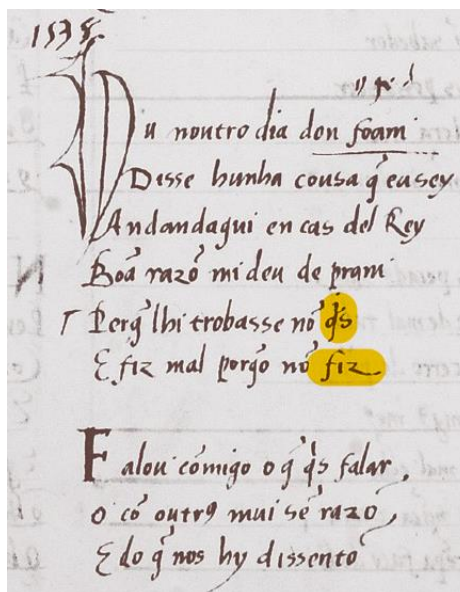 1535
Vi noutro dia don foam
Disse hunha cousa q̃ eu sey
Andandaqui en cas del Rey
Boã razõ mi deu de pram
Perq̃ lhi trobasse nõ q̇s
E fiz mal porq̃o nõ fiz
Falou cõmigo o q̃ q̇s falar
o cõ outrꝯ mui sẽ razõ
E do q̃ nos hy dissentõ